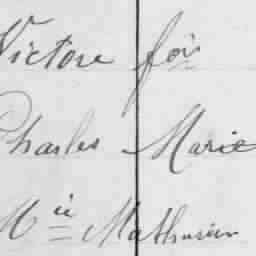 Victore foi
Charles Marie
Mie Mathurin